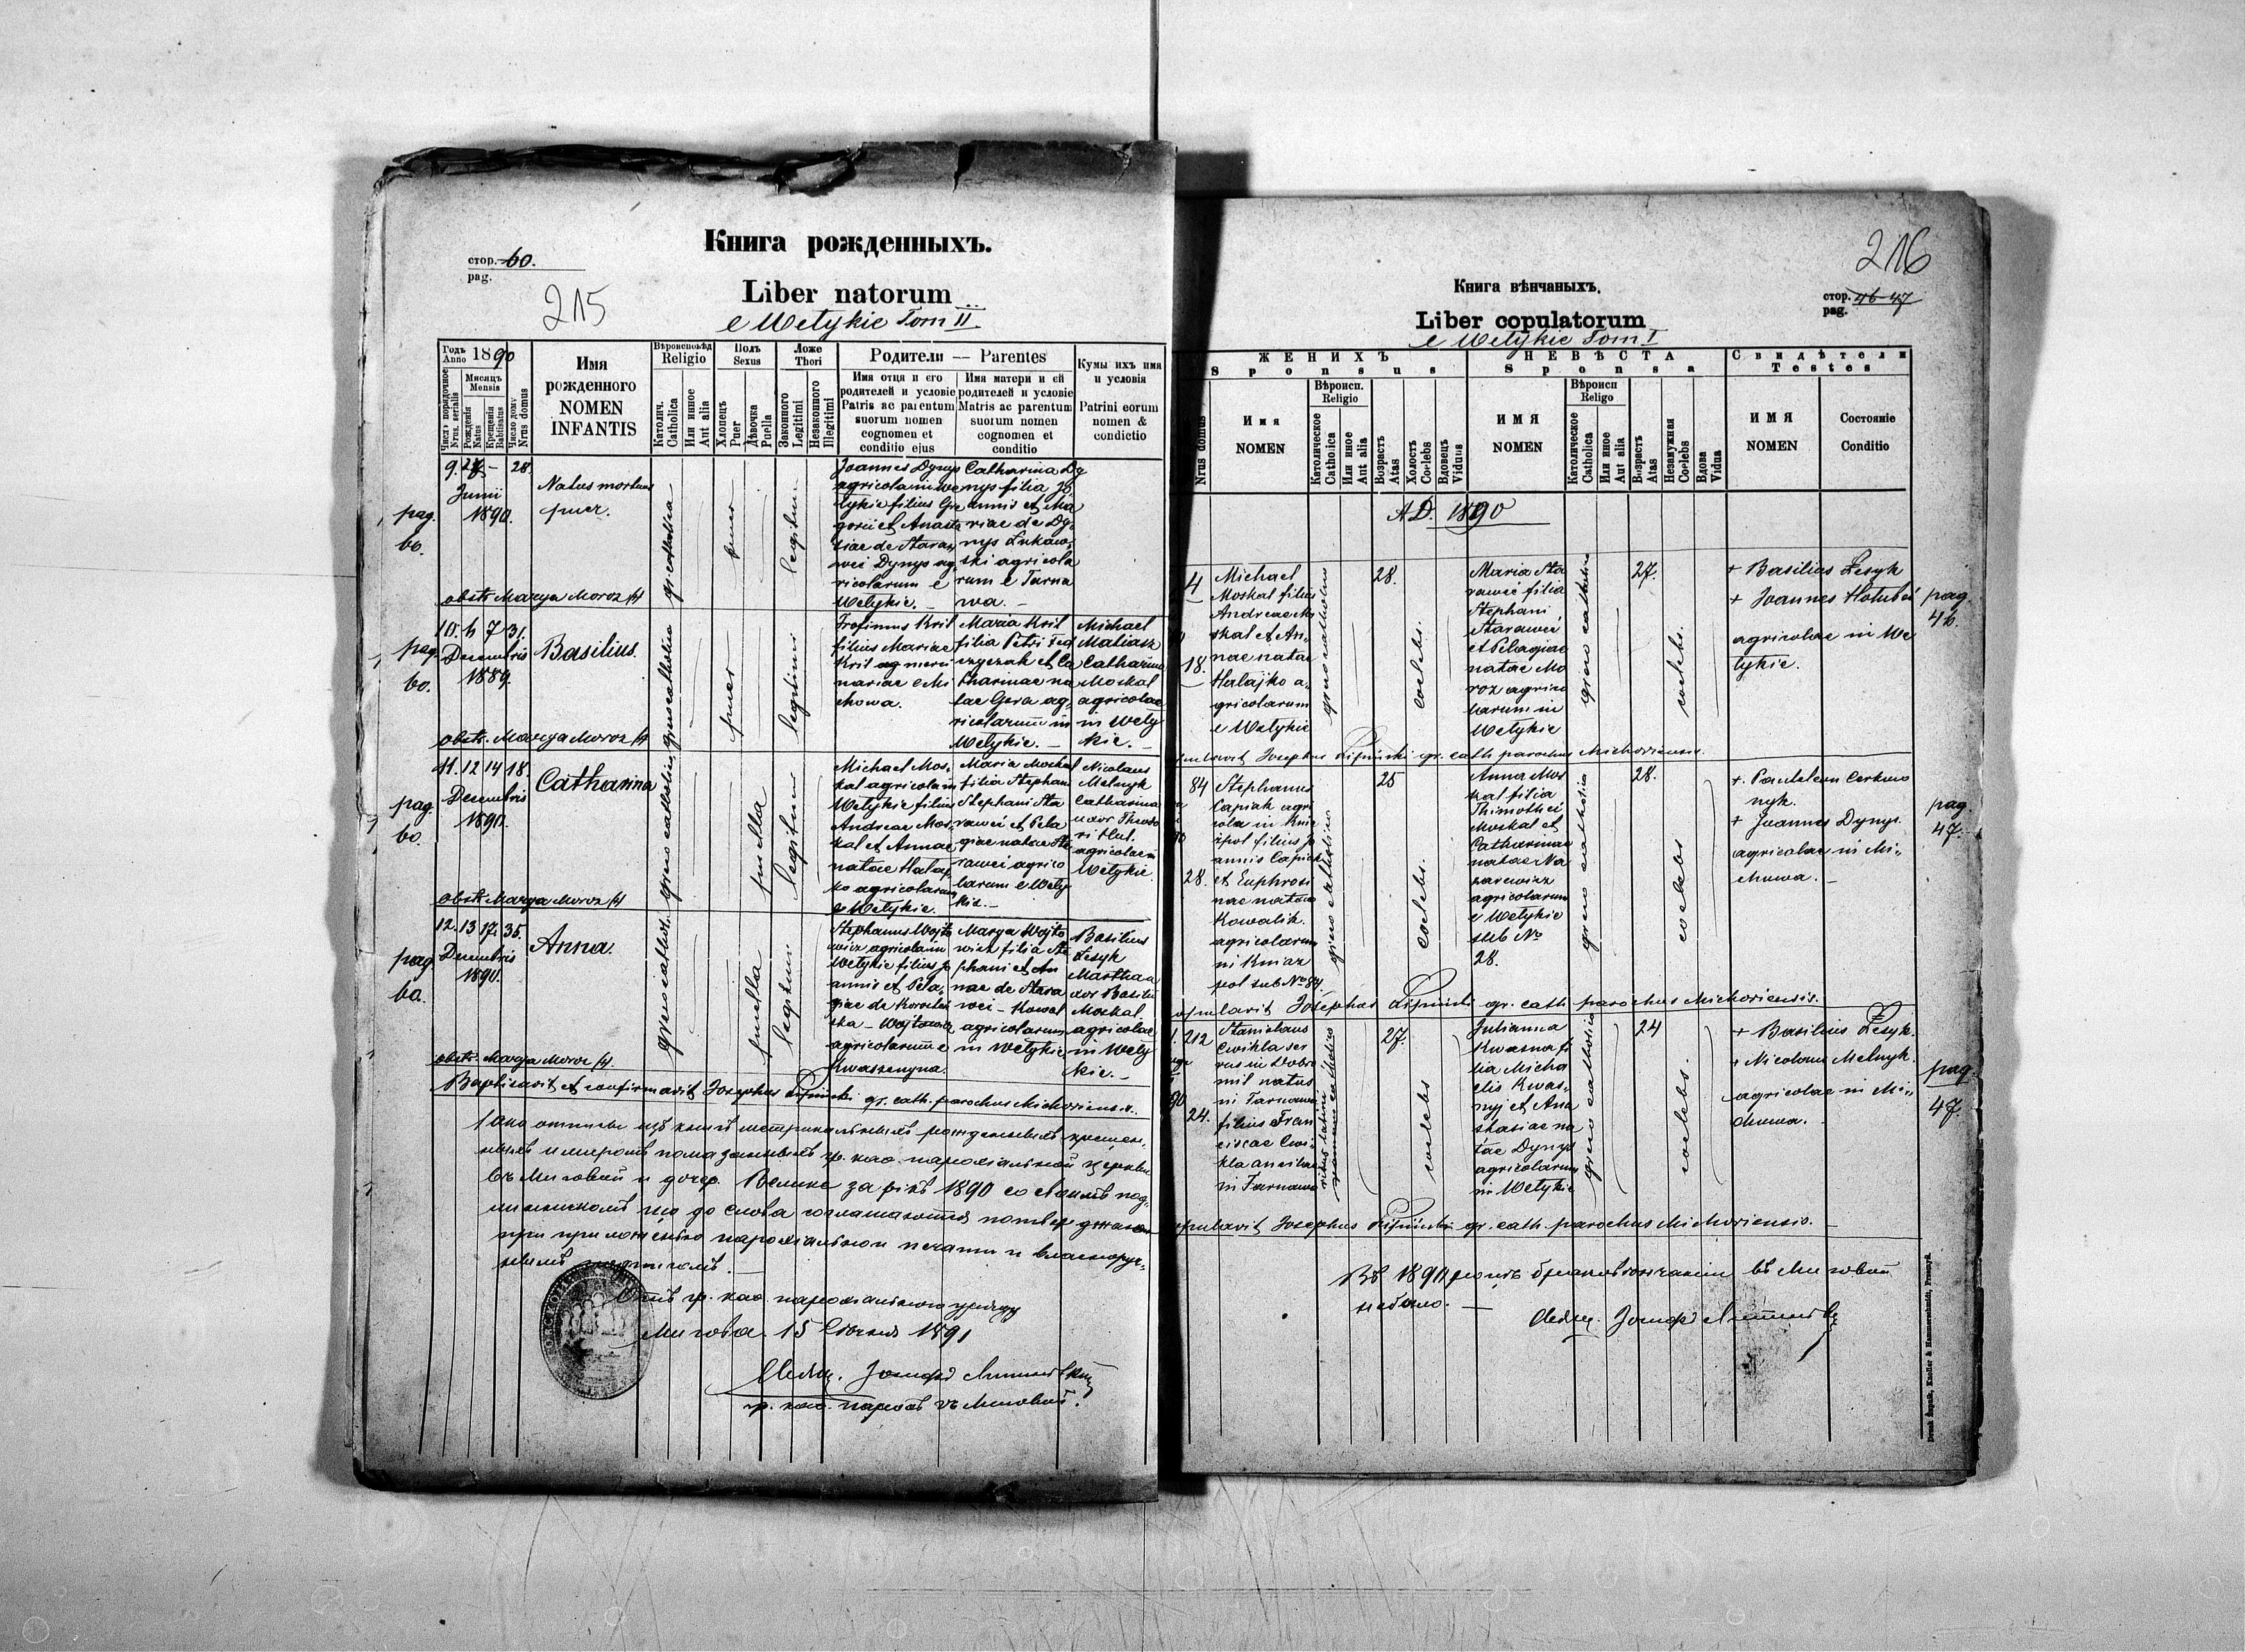 Книга рожденныхъ.
стор. 60.
pag.
215
Liber natorum
e Wetykie Tom II
Годъ 1890
Anno
Числo порядочное
Nrus. serialis
Мѣсяцъ
Mensis
Рождения
Natus
Крещения
Babtisatus
Число дому
Nrus domus
Имя
рожденного
NOMEN
INFANTIS
Вѣроисповѣд
Religio
Католич.
Catholica
Или инное
Aut alia
Полъ
Sexus
Хлопецъ
Puer
Дѣвочка
Puella
Ложе
Thori
Законного
Legitimi
Незаконного
Illegitimi
Родители — Parentes
Имя отца и его
родителей и условіе
Patris ac parentum
suorum nomen
cognomen et
conditio ejus
Имя матери и ей
родителей и условіе
Matris ac parentum
suorum nomen
cognomen et
conditio
Кумы ихъ имя
и условія
Patrini eorum
nomen &
condictio
pag.
60.
9. 28
Junii
1890.
Natus mortuus
puer.
greco catholica
puer
legitimi
Joannes Dynys
agricola in We
tykie filius Gre
gorii et Anasta
siae de Stara
wei Dynys ag
ricolarum e
Wetykie. –
Catharina Dy
nys filia Jo
annis et Ma
riae de Dy
nys Lukaw
ski agricola
rum e Tarna
wa. –
obstr. Marya Moroz
pag.
60.
10. 4 7 31.
Decembris
1889.
Basilius.
greco catholica
puer
legitimi
Trofimus Kril
filius Mariae
Kril ag merce
nariae e Mi
chowa.
Maria Kril
filia Petri Fed
czyczak et Ca
tharinae na
tae Gera ag
ricolarum in
Wetykie. –
Michael
Matiasz
Catharina
Moskal
agricolae
in Wety
kie. –
obstr. Marya Moroz
pag.
60.
11. 12 14 18.
Decembris
1890.
Catharina
greco catholica
puella
legitimi
Michael Mos
kal agricola in
Wetykie filius
Andreae Mos
kal et Annae
natae Halaj
ko agricolarum
e Wetykie.
Maria Moskal
filia Stephani
Stephani Sta
rawei et Pela
giae natae
rawei agrico
larum e Wety
kie. –
Nicolaus
Melnyk
Catharina
uxor Theodo
ri Hul.
agricolae in
Wetykie.
obstr. Marya Moroz
pag
60.
12. 13 17. 35.
Decembris
1890.
Anna.
greco cathol.
puella
legitimi
Stephanus Wojto
wicz agricola in
Wetykie filius Jo
annis et Pela
giae de
ska – Wojtowicz
agricolarum e
Kwaszenyna.
Marya Wojto
wicz filia Ste
phani et An
nae de Stara
wei – Kowal
agricolarum
in Wetykie
Basilius
Lesyk
Martha u
xor Basilii
Moskal
agricolae
in Wety
kie. –
obstr. Marya Moroz
Baptisavit et confirmavit Josephus Lipinski gr. cath. parochus Michoviensis.
въ Миховой и дочер. Велике за рікъ 1890 со
Отъ гр. као. парохіального уряду
Михова. 15 Січня 1891
Іосифъ Липинскій
гр. као. парохъ въ Миховой.
216
Книга вѣнчаныхъ.
стор. 46-47
pag.
Liber copulatorum
e Wetykie Tom I
ЖЕНИХЪ
Sponsus
НЕВѢСТА
Sponsa
Свидѣтели
Testes
Nrus domus
Имя
NOMEN
Вѣроисп.
Religio
Католическое
Catholica
Или инное
Aut alia
Возрасть
Atas
Холость
Coelebs
Вдовець
Viduus
ИМЯ
NOMEN
Вѣроисп
Religo
Католическое
Catholica
Или инное
Aut alia
Возрасть
Atas
Незамужная
Coelebs
Вдова
Vidua
ИМЯ
NOMEN
Состояніе
Conditio
A.D. 1890
4
18.
Michael
Moskal filius
Andreae Mo
skal et An
nae natae
Halajko a
gricolarum
e Wetykie
greco catholicus
28.
coelebs.
Maria Sta
rawei filia
Stephani
Starawei
et Pelagiae
natae Mo
roz agrico
larum in
Wetykie
greco catholica
27.
coelebs.
+ Basilius Lesyk
+ Joannes Holubei
agricolae in We
tykie.
pag.
46.
copulavit Josephus Lipinski gr. cath parochus Michoviensis.
84
28.
Stephanus
Capiak agri
cola in Kniaz
pol filius Jo
annis Capiak
et Euphrosi
nae natae
Kowalik.
agricolarum
in Kniaz
pol sub No 84.
greco catholicus
25
coelebs.
Anna Mos
kal filia
Thimothei
Moskal et
Catharinae
natae Na
zarewicz
agricolarum
e Wetykie
sub No
28.
greco catholica
28.
coelebs
+ Panteleon
nyk.
+ Joannes Dynys.
agricolae in Mi
chowa. –
pag
47.
copulavit Josephus Lipinski gr. cath parochus Michoviensis.
212
24.
Stanislaus
Cwikla ser
vus in Dobro
mil natus
in Tarnawa
filius Fran
ciscae Cwi
kla ancillae
in Tarnawa
ritus latini
romano catholicus
27.
coelebs
Julianna
Kwasna fi
lia Micha
elis Kwas
nyj et Ana
stasiae na
tae Dynys
agricolarum
in Wetykie
greco catholica
24
coelebs.
+ Basilius Lesyk.
+ Nicolaus Melnyk.
agricolae in Mi
chowa.
pag.
47.
copulavit Josephus Lipinski gr. cath. parochus Michoviensis. –
Въ 1890 роцѣ бракосочтаній въ Миховой
не было. –
Іосифъ Липинскій
Druk Żupnik, Knoller & Hammerschmidt, Przemyśl.